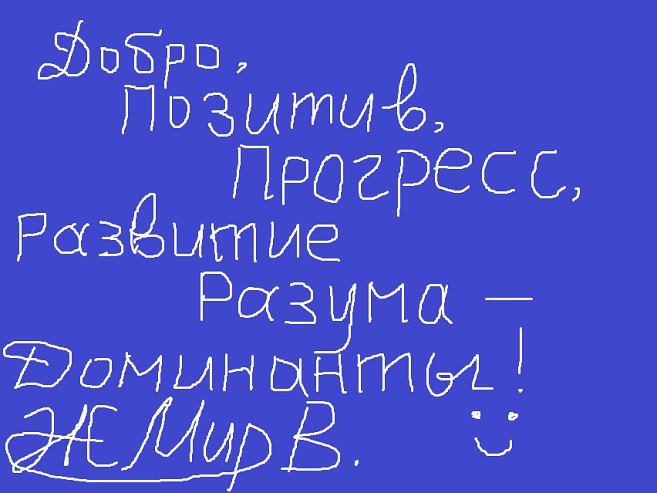 Добро,
Позитив,
Прогресс,
Развитие
Разума —
Доминанты!
ЖЕ Мир В.